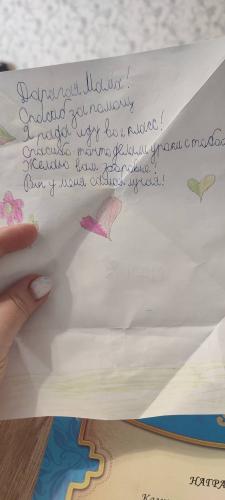 Дарагая Мама!
Спасиб за помощ
Я рада иду во 2 класс!
Спасибо что делаем уроки с табой
Желаю вам здоровья!
Вы у меня самая лучая!
НАГРА